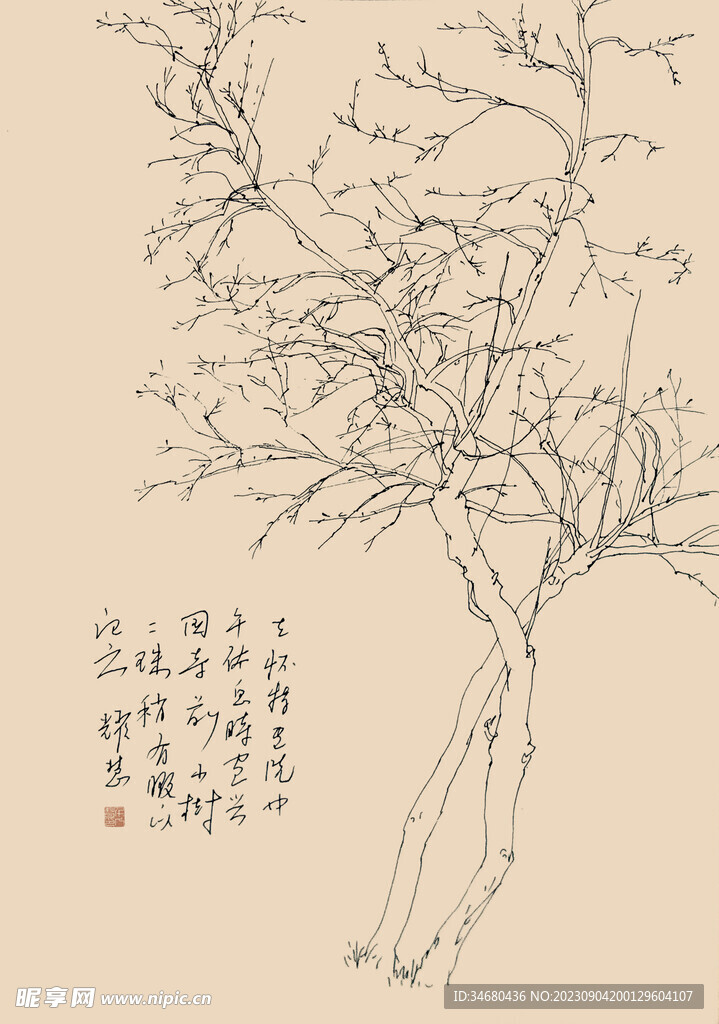 怀特中
午休息時
国寺前小樹
二珠稍有暇以
记之 耀慧
昵享网 www.nipic.cn
ID:34680436 NO:20230904200129604107